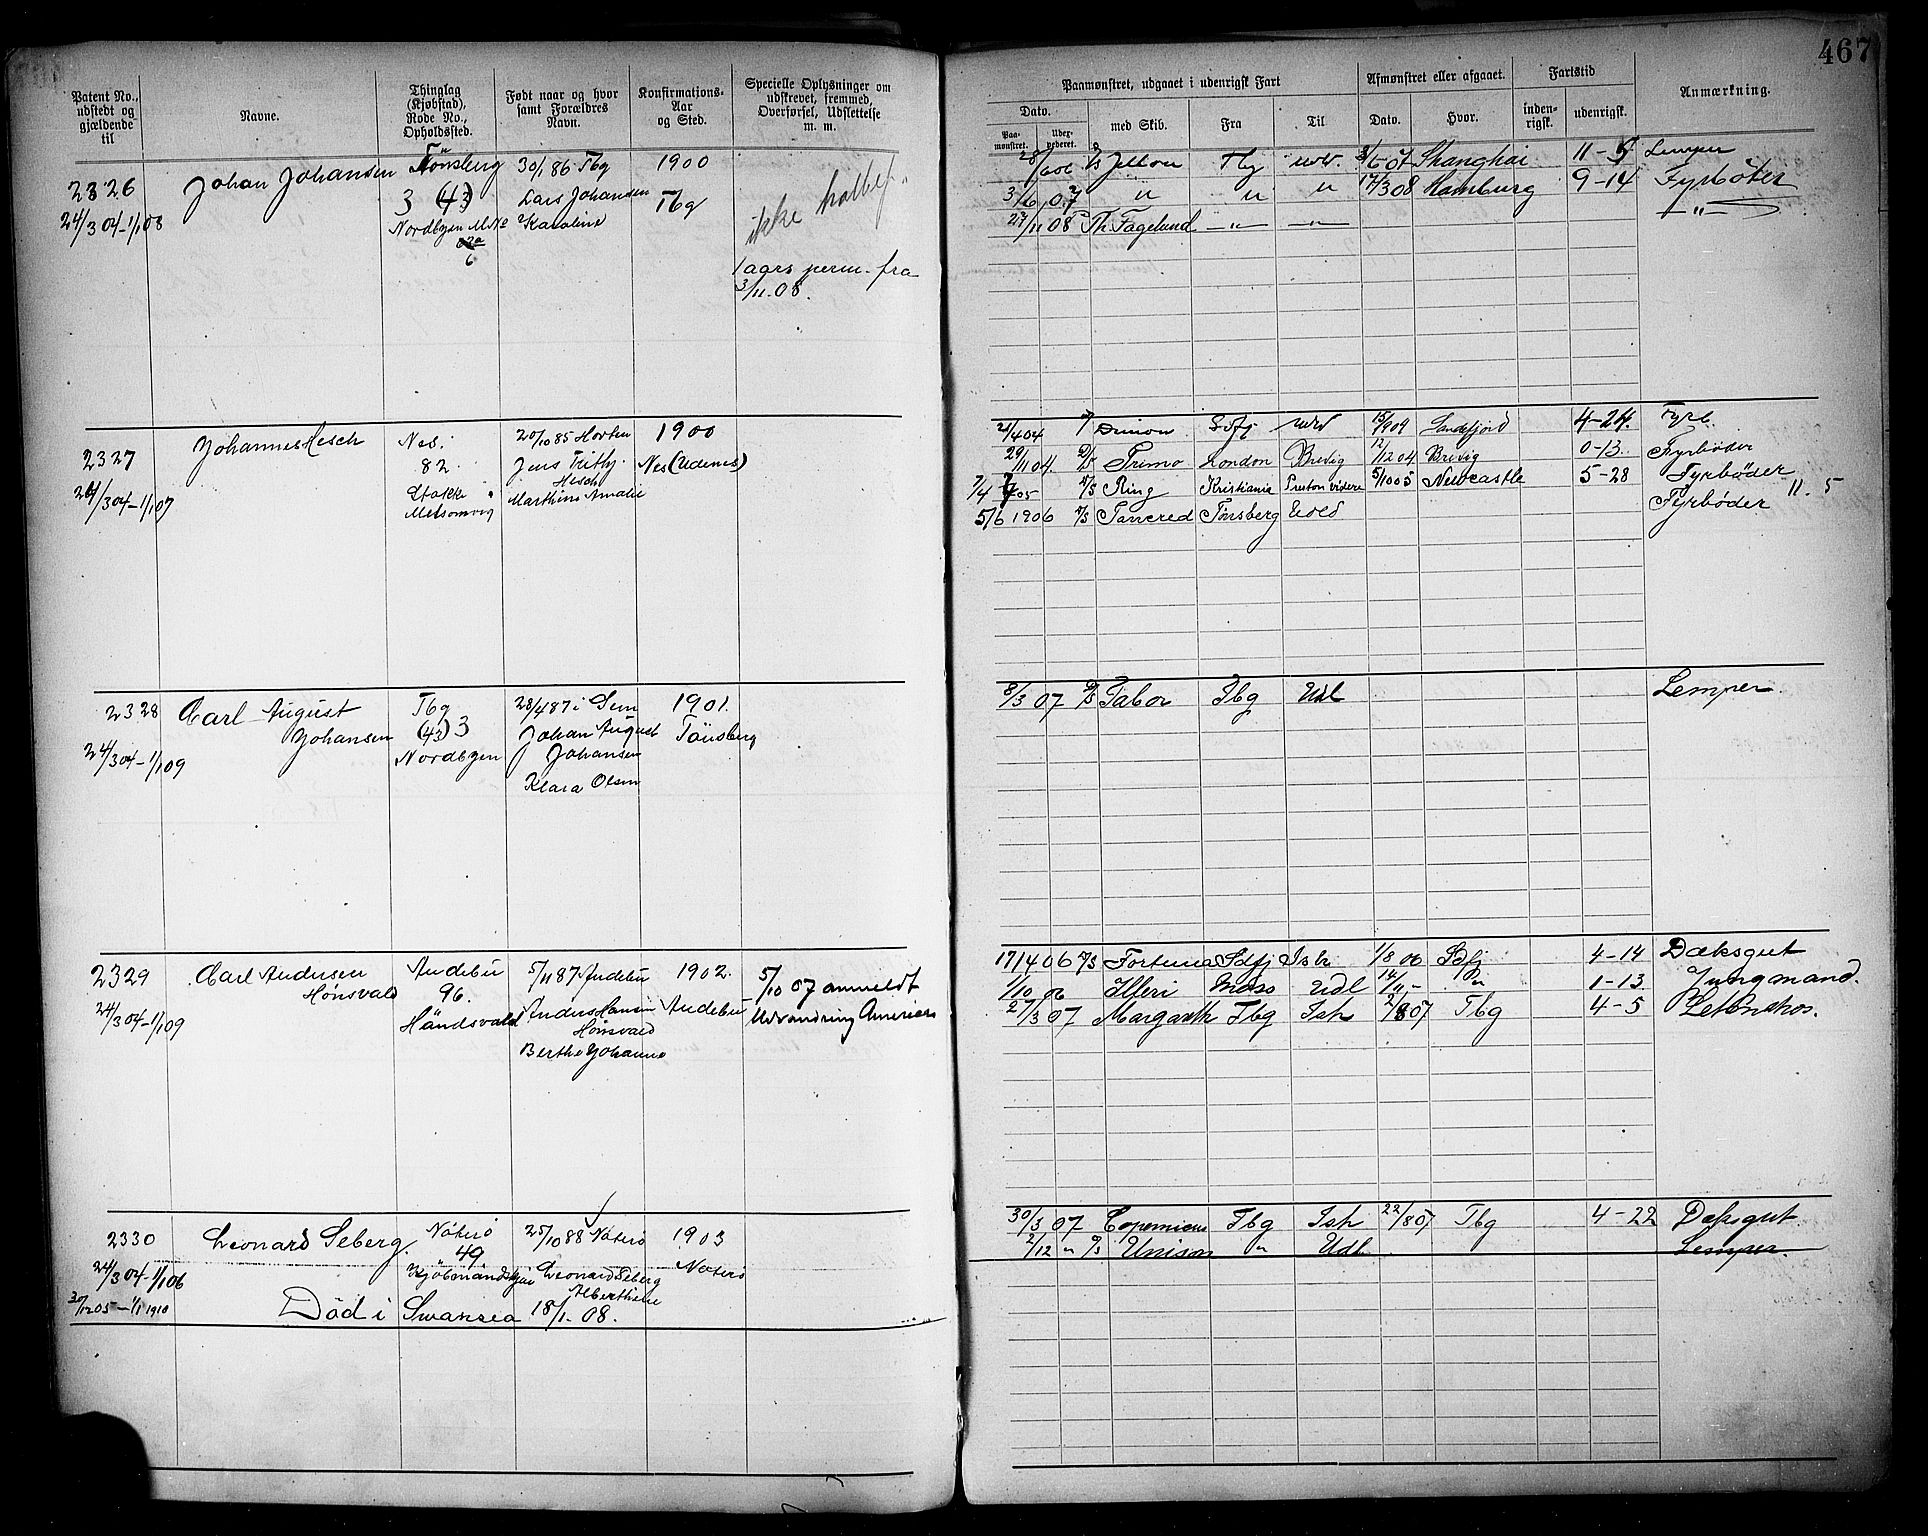 467
Patent No., udstedt og gjældende til
Navne.
Thinglag (Kjøbstad), Rode No., Opholdssted.
Født naar og hvor samt Forældres Navn.
Konfirmations-Aar og Sted.
Specielle Oplysninger om udskrevet, fremmed, Overførsel, Udslettelse m. m.
Paamønstret, udgaaet i udenrigsk Fart
Afmønstret eller afgaaet.
Fartstid
Anmærkning.
Dato.
med Skib.
Fra
Til
Dato.
Hvor.
inden-rigsk.
udenrigsk.
Paa-mønstret.
2326 Johan Johansen Tönsberg 30/1 86 Tbg 1900
24/3 04-1/1 08 3 (43) Lars Johansen Tbg
Nordbyen Karoline
ikke
1 aars perm. fra
3/11.08.
28/6 06 Jellon Tbg 3/6-07 Shanghai 11-5 Lemper
3/6 07 " " " 17/3 08 Hamburg 9-14 Fyrböter
27/11 08 Th. Fagelund -"- -"- -"-
2327 Johannes Hesch Nes. 20/10 85 Horten 1900
24/3 04-1/1 07 82. Jens Hesch Nes (Udenes)
Stokke Marthine Amalie
Melsomvig
21/4 04 Sdfj Udl 15/9 04 Sandefjord 4-24. Fyrb.
29/11 04. Primo London Brevig 12/12 04 Brevig 0-13. Fyrbøder
7/4 05 Ring Kristiania Preston videre 5/10 05 Newcastle 5-28 Fyrbøder 11. 5
5/6 1906 Tancred Tønsberg Udld Fyrbøder
2328 Carl August Johansen Tbg 28/4 87 i Sem 1901.
24/3 04-1/1 09 (43) 3 Johan August Johansen Tönsberg
Nordbyen Klara Olsen
8/3 07 D/S Tabor Tbg Udl Lemper.
2329 Carl Andersen Hønsvald Andebu 5/11 87 Andebu 1902. 5/10 07 anmeldt
24/3 04-1/1 09 96. Anders Hansen Hønsvald Andebu Udvandring Amerika
Håndsvald Berthe Johanne
17/4 06 Fortuna Sdfj Ish 1/8 06 Sdfj 4-14 Dæksgut
1/10 06 Ilferi Moss Udl 14/11- 1-13 Jungmand.
27/3 07 Margareth Tbg Ish 2/8 07 Tbg 4-5 Letmatros.
2330 Leonard Seberg. Nöterö 25/10 88 Nöterö 1903
24/3 04-1/1 06 49. Leonard Seberg Nöterö
30/12 05-1/1 1910 Kjöbmandskjær Alberthine
Död i Swansea 18/1. 08.
30/3 07 Copernicus Tbg Ish 22/8 07 Tbg 4-22 Dæksgut.
2/12 " D/S Unison " Udl. Lemper.